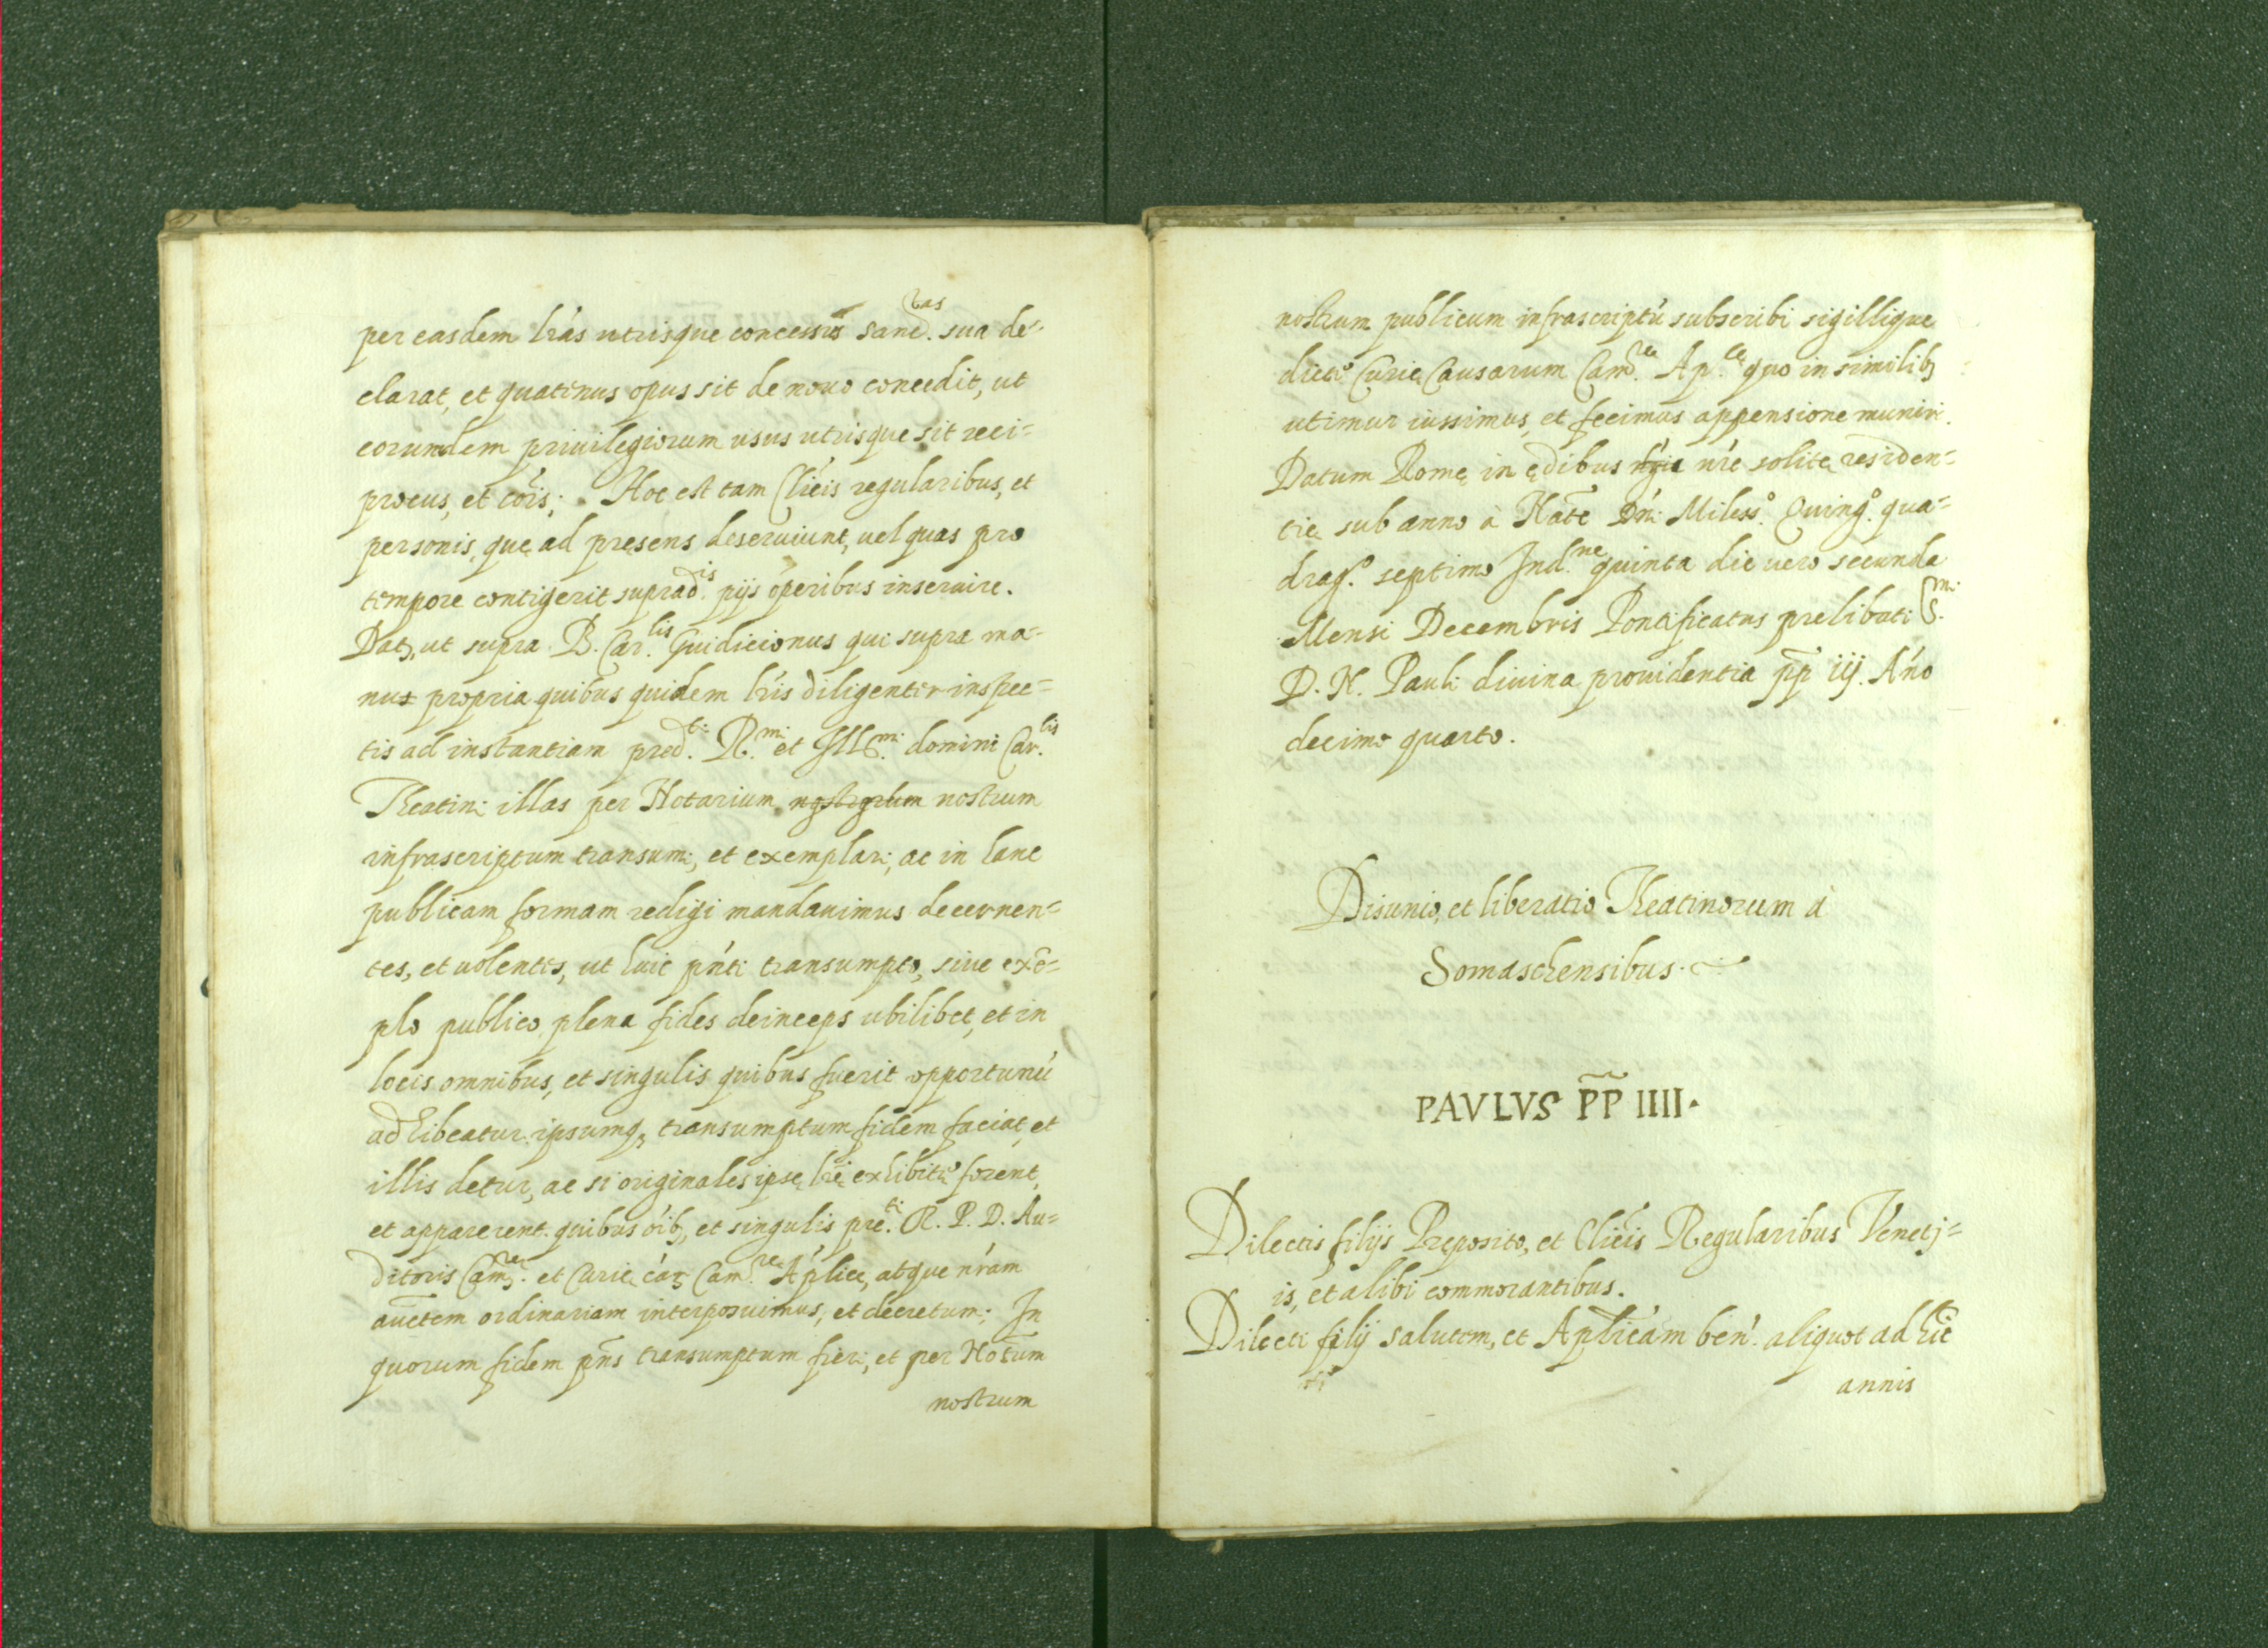 per easdem lr̃as utrisque concessis sanct.tas sua de-
clarat, et quatenus opus sit de nouo concedit, ut
eorundem priuilegiorum usus utrisque sit reci-
procus, et cõis; Hoc est tam Cl̃icis regularibus, et
personis, quę ad pręsens deseruiunt, uel quas pro
tempore contigerit suprad.is pijs operibus inseruire.
Dat, ut supra B. Car.lis Guidicionus qui supra ma-
nus propria quibus quidem lr̃is diligenter inspec-
tis ad instantiam pred.ti R.mi et Ill.mi domini Car.lis
Theatini illas per Notarium nostrorum nostrum
infrascriptum transumi, et exemplari, ac in hanc
publicam formam redigi mandauimus decernen-
tes, et uolentes, ut huic pñti transumpto, siue exẽ-
plo publico plena fides deinceps ubilibet, et in
locis omnibus, et singulis quibus fuerit opportunũ
adhibeatur ipsumq; transumptum fidem faciat, et
illis detur, ac si originales ipsę lr̃ę exhibitę forent,
et apparerent quibus oĩb; et singulis pre.ti R. P. D. Au-
ditoris Cam.re et Curię cãr Cam.re Ap̃licę, atque nr̃am
auctem ordinariam interposuimus, et decretum; In
quorum fidem pñs transumptum fieri, et per Notum
nostrum
nostrum publicum infrascriptũ subscribi sigillique
dictę Curię Causarum Cam.re Ap.ce quo in similib;
utimur iussimus, et fecimus appensione muniri.
Datum Romę in ędibus nr̃e solitę residen-
tię sub anno à Natẽ Dñi Miless.o Quing.o qua-
drag.o septimo Ind.ne quinta die uero secunda
Mensi Decembris Pontificatus prelibati S.mi
D. N. Pauli diuina prouidentia p̃p iij. Añno
decimo quarto.
Disunio, et liberatio Theatinorum à
Somaschensibus.
PAVLVS P̃P IIII.
Dilectis filijs Pręposito, et Cl̃icis Regularibus Venetj-
is, et alibi commorantibus.
Dilecti filij salutem, et Ap̃licam ben̄. aliquot ad hĩc
annis